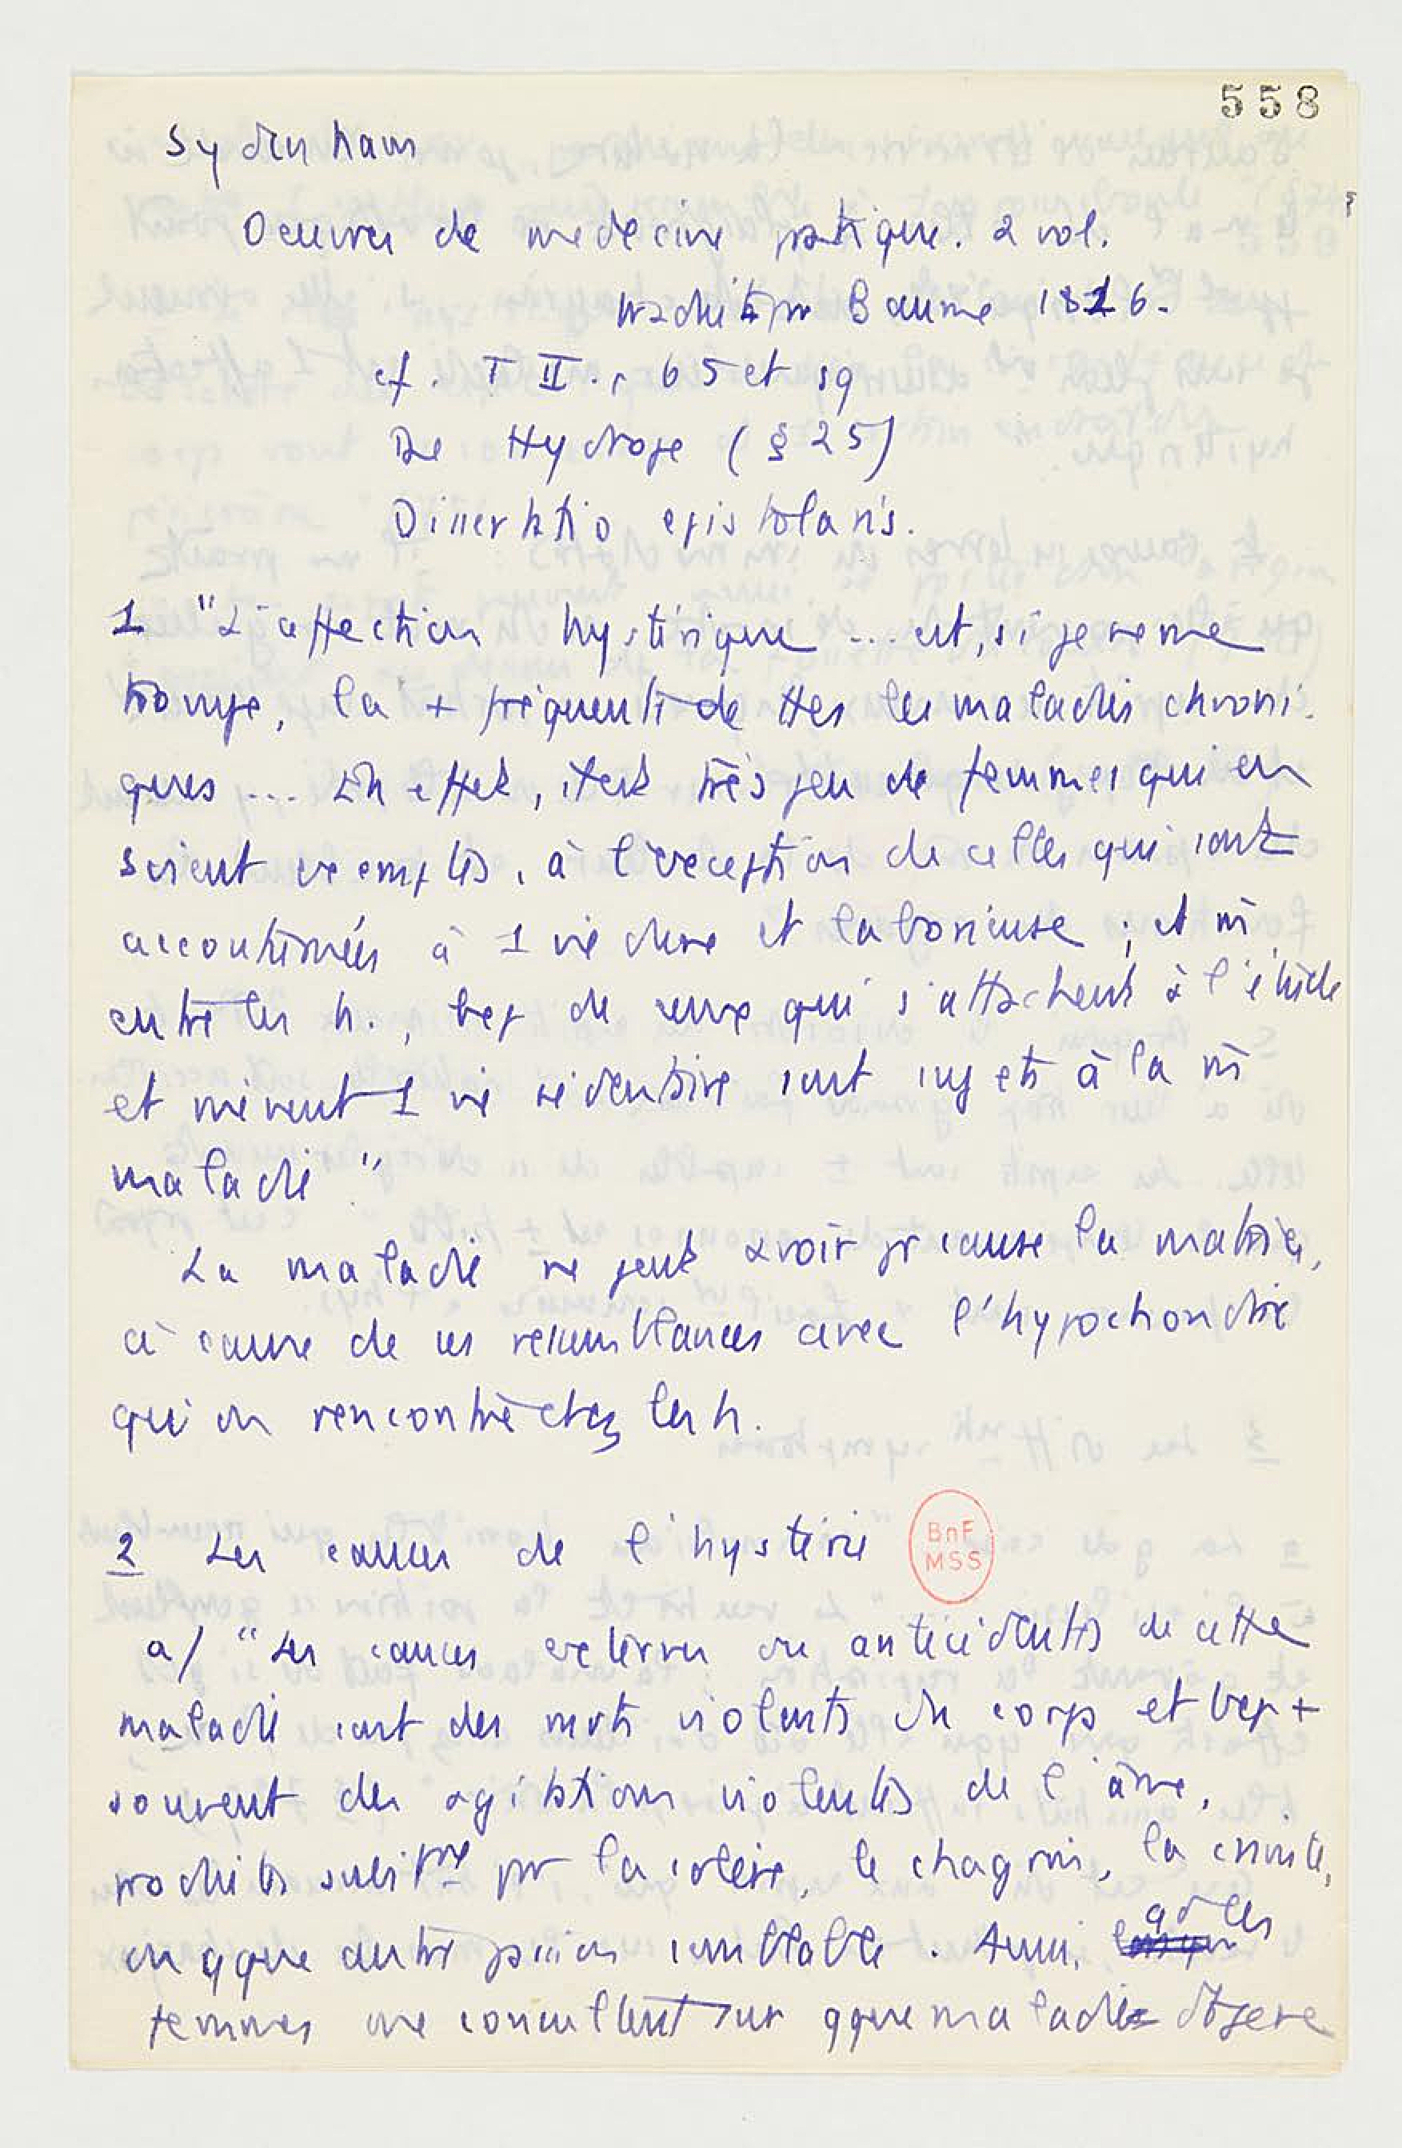 558
Sydenham
Oeuvres de médecine pratique. 2 vol.
traduites par Baume 1816.
cf. T II. p 65 et sq
De Hydrope (§ 25)
Dissertatio epistolaris.
1 "L'affection hystérique ... est, si je ne me
trompe, la + fréquente de ttes les maladies chroni-
ques ... En effet, il est très peu de femmes qui en
soient exemptes, à l'exception de celles qui sont
accoutumées à 1 vie dure et laborieuse ; et m̂
entre les h., bcp de ceux qui s'attachent à l'étude
et mènent 1 vie sédentaire sont sujets à la m̂
maladie "
La maladie ne peut avoir pr cause la matrice,
à cause de ses ressemblances avec l'hypochondrie
qu'on rencontre chez les h.
2 Les causes de l'hystérie
BnF
MSS
a/ "Les causes externes ou antécédentes de cette
maladie sont des mvts violents du corps et bcp +
souvent des agitations violentes de l'âme,
produites subitmt par la colère, le chagrin, la crainte,
ou qque autre passion semblable. Aussi, qd les
femmes me consultent sur qque maladie